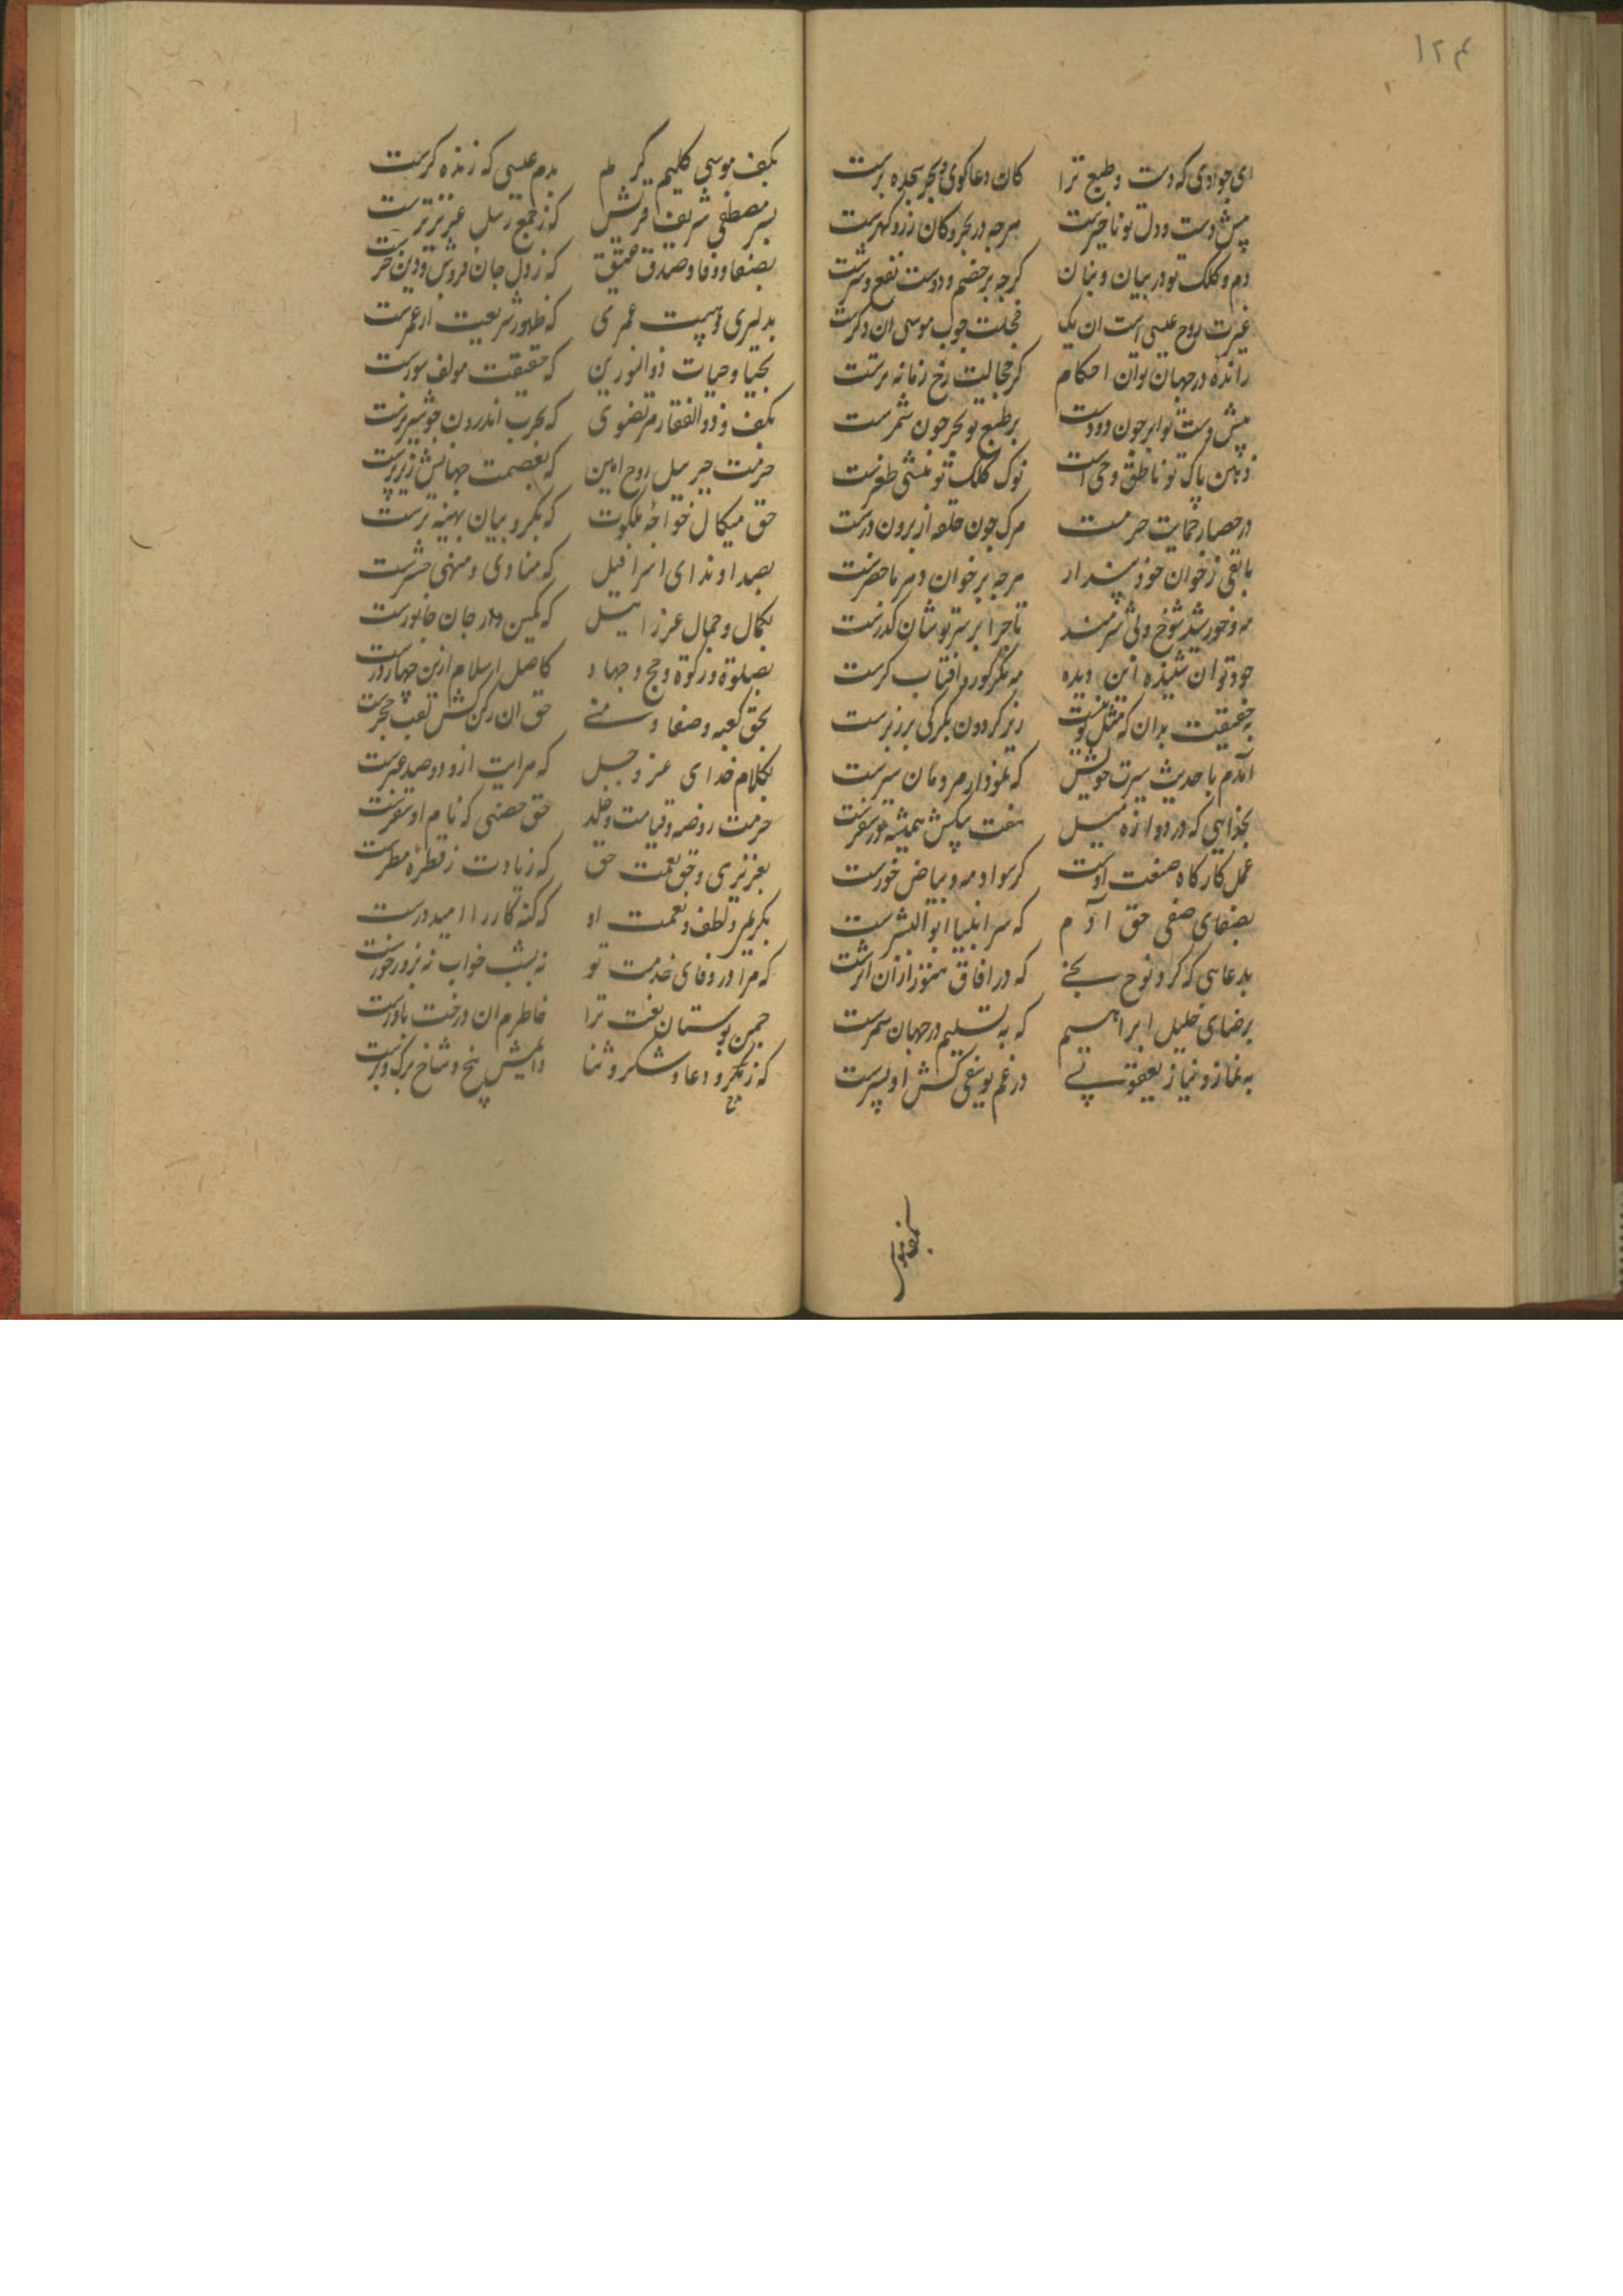 ۱۲۴
ای جوادی که دست و طبع ترا کان دعاکوی و بحر سجده برست
پیش دست و دل تو ناخیرست هرجه در بحر و کان زر و کهرست
دم و کلک تو در بیان و بنان کرجه بر خصم و دوست نفع و ضرست
غیرت روح عیسی است ان یک خجلت جوب موسی ان دکرست
رانده در جهان توان احکام کز خجالت رخ زمانه ترست
پیش دست تو ابر جون دودست بر طبع تو بحر جون شمرست
ذهن پاک تو ناطق وحی است نوک کلک تو منشی ظفرست
در حصار حمایت حرمت مرک جون حلقه از برون درست
با بقی زخوان خود پندار هرجه بر خوان دهر ماحضرست
مه و خورشید شوخ ولی شرمند تا جرا بر سر تو شان کذرست
جود تو ان شنیده این دیده مه مکر کور و افتاب کرست
به حقیقت بدان که مثل تو نیست زیر کردون مکر کی بر زبرست
آمدم با حدیث سیرت خویش که نمودار مردمان سیرست
بخدایی که در دوازده میل هفت پیکش همیشه در سفرست
عمل کارکاه صنعت اوست کر سواد مه و بیاض خورست
بصفای صفی حق آدم که سر انبیا ابوالبشرست
بدعاسی که کرد نوح نجی که در افاق هنوز ازان اثرست
برضای خلیل ابراهیم که به تسلیم در جهان سمرست
به نماز و نیاز یعقوبی در غم یوسفی کش او پسرست
بکف موسی کلیم کریم بدم عیسی که زنده کرست
بسر مصطفی شریف قریش که ز جمع رسل عزیزترست
بصفا و وفا و صدق عتیق که ز دل جان فروش و دین خرست
بدلیری و هیبت عمری که ظهور شریعت از عمرست
بحیا و حیات ذوالنورین که حقیقت مولف سورست
بکف و ذوالفقار مرتضوی که بحرب اندرون جو شیر نرست
حرمت جبرییل روح امین که بعصمت جهانیش زیر پرست
حق میکال خواجهٔ ملکوت که بکروبیان بهینه ترست
بصدا و ندای اسرافیل که منادی و منهی حشرست
بکمال و جمال عزراییل که کمین دار جان جانورست
بصلوة و زکوة و حج و جهاد کاصل اسلام ازین جهار درست
بحق کعبه و صفا و منی حق ان رکن کش لقب حجرست
بکلام خدای عز وجل که مرایت ازو دو صد عبرست
حرمت روضه و قیامت و خلد حق حصنی که نام او سقرست
بعزیزی و حق نعمت حق که زیادت ز قطرهٔ مطرست
بکرم لطف و نعمت او که کنه کار را امید درست
که مرا در وفای خدمت تو نه بشب خواب نه بروز خورست
جمن بوستان نعت ترا خاطرم ان درخت بارورست
که ز مدح و دعا و شکر و ثنا دایمش بیخ و شاخ و برک و برست
بکف موسی